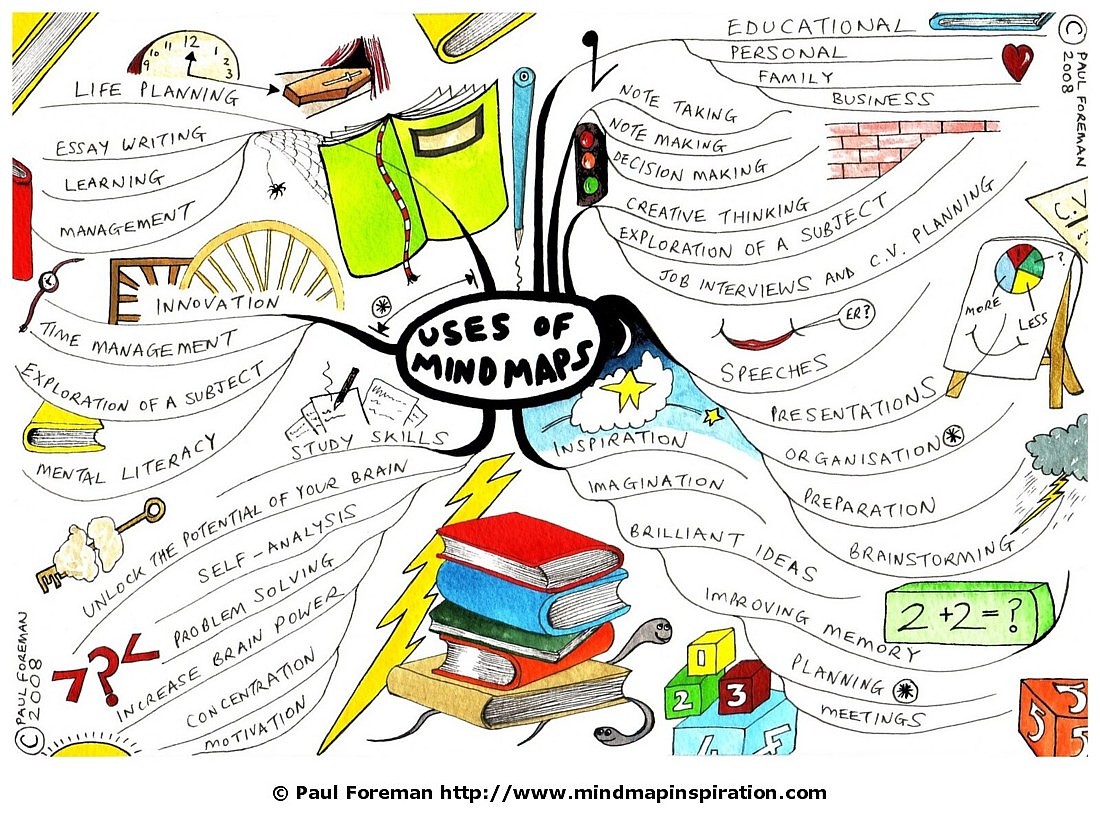 EDUCATIONAL
PERSONAL
FAMILY
BUSINESS
NOTE TAKING
NOTE MAKING
DECISION MAKING
CREATIVE THINKING
EXPLORATION OF A SUBJECT
JOB INTERVIEWS AND C.V. PLANNING
C.V.
© PAUL FOREMAN
2008
ER?
SPEECHES
?
MORE
LESS
PRESENTATIONS
ORGANISATION
PREPARATION
BRAINSTORMING
USES OF
MIND MAPS
INSPIRATION
IMAGINATION
BRILLIANT IDEAS
IMPROVING MEMORY
2+2=?
PLANNING
MEETINGS
1
2
3
4
5
5
5
12
11
10
9
1
2
3
LIFE PLANNING
ESSAY WRITING
LEARNING
MANAGEMENT
INNOVATION
TIME MANAGEMENT
EXPLORATION OF A SUBJECT
MENTAL LITERACY
STUDY SKILLS
UNLOCK THE POTENTIAL OF YOUR BRAIN
SELF-ANALYSIS
PROBLEM SOLVING
INCREASE BRAIN POWER
CONCENTRATION
MOTIVATION
???
© PAUL FOREMAN
2008
© Paul Foreman http://www.mindmapinspiration.com